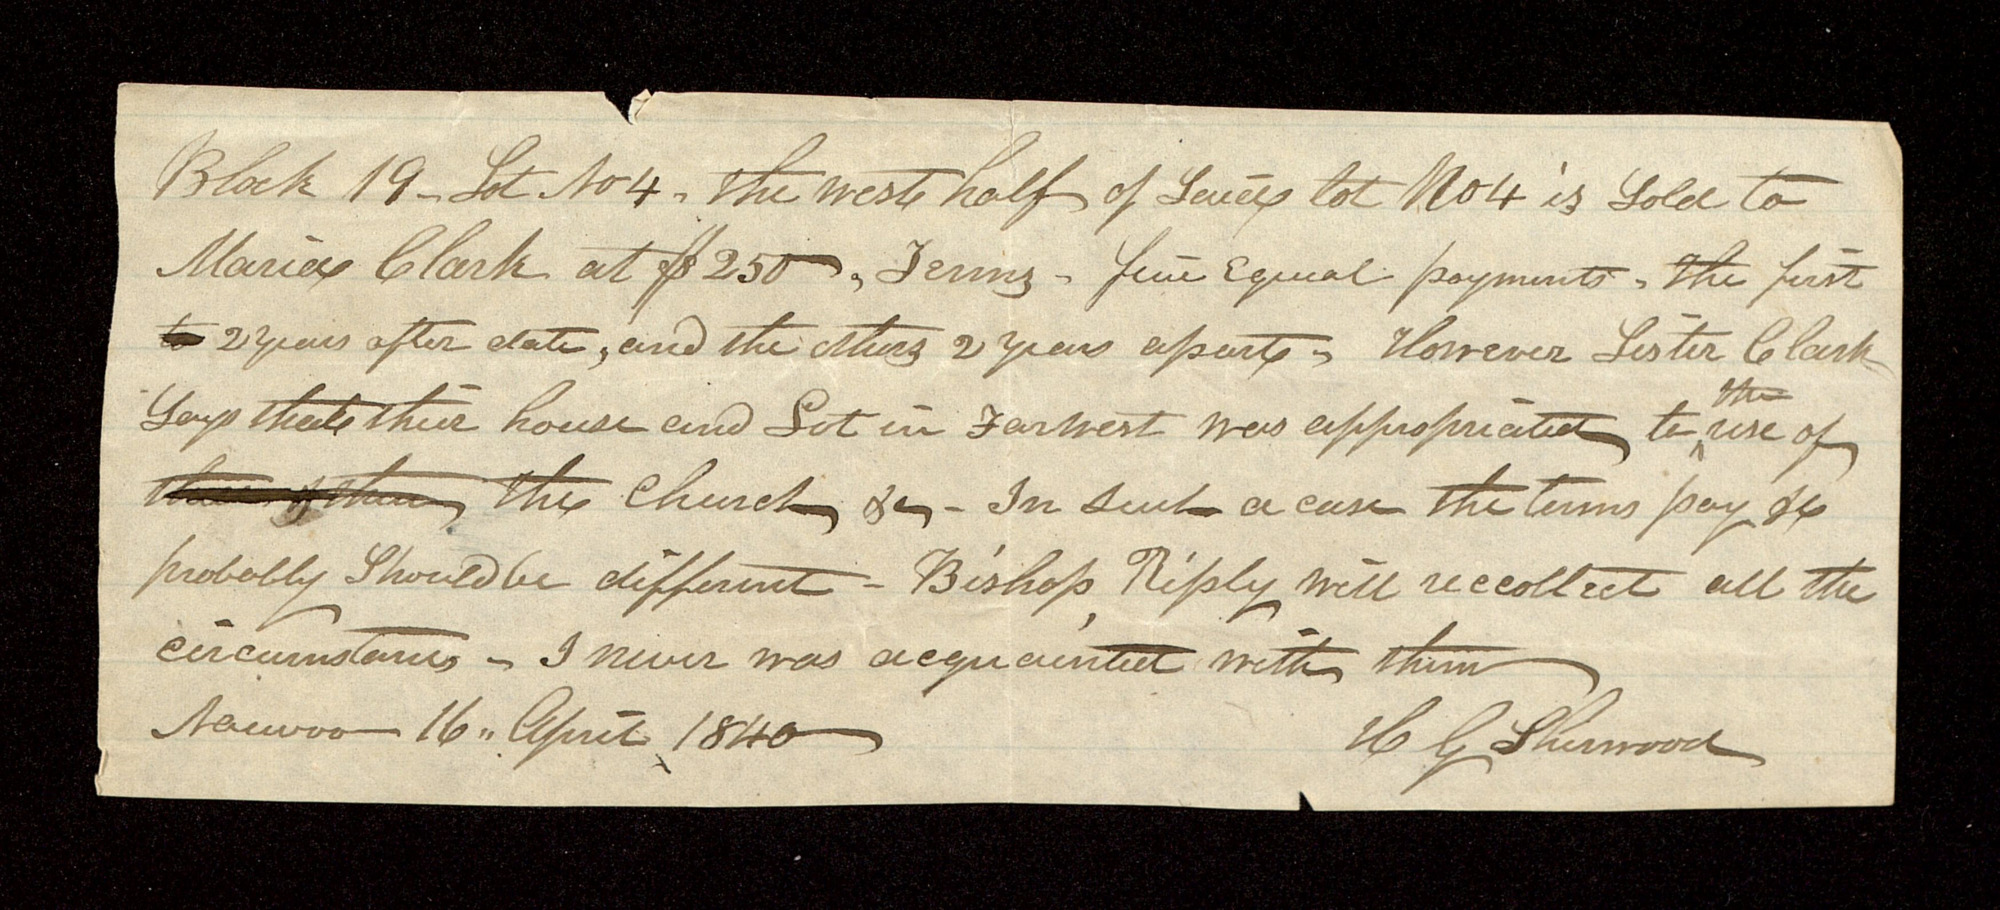 Block 19 - Lot No 4 - the west half of Said lot No 4 is Sold to
Maria Clark at $250, Terms - five Equal payments - the first
to 2 years after date, and the others 2 years apart - However Sister Clark
Says that their house and Lot in Farwest was appropriated to the use of
the Church &c - In such a case the terms pay &c
probably Should be different - Bishop Riply will reccollect all the
circumstances - I never was acquainted with them
Nauvoo 16" April 1840 H G Sherwood